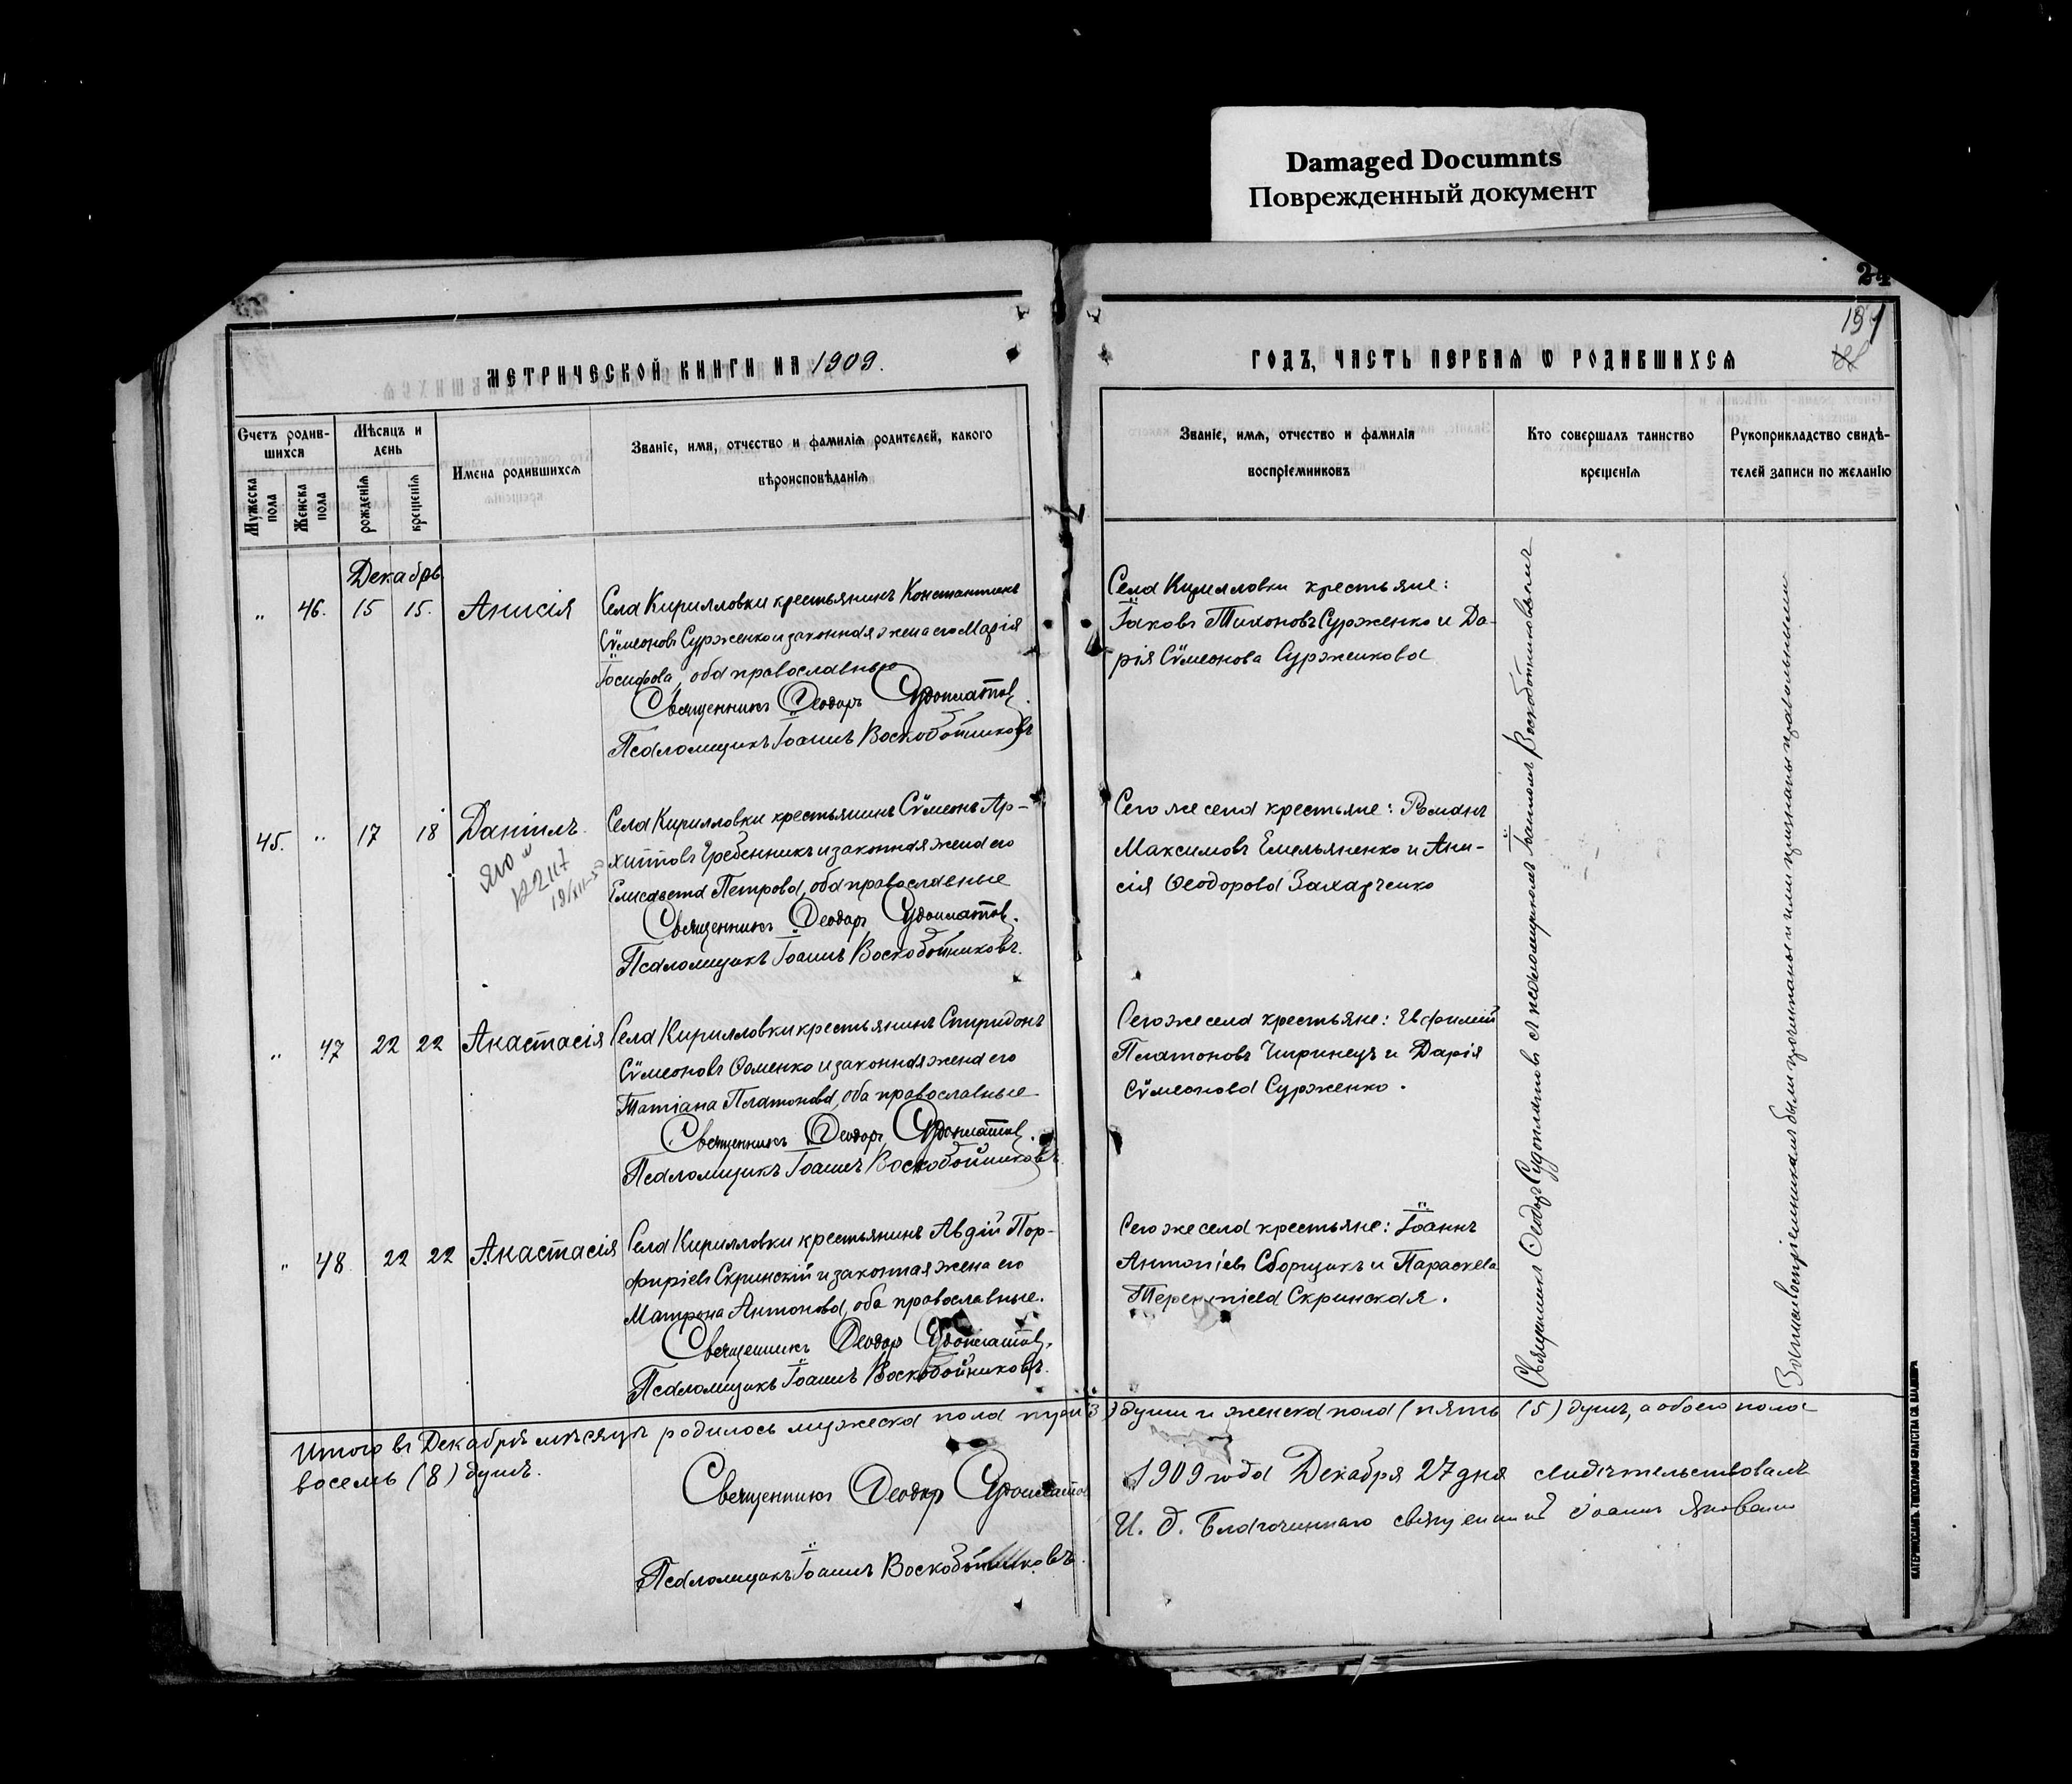 Damaged Documnts
Поврежденный документ
24
МЕТРИЧЕСКОЙ КНИГИ НА 1909.
Счетъ родив-
шихся
Мѣсяцъ и
день
Мужеска
пола
Женска
пола
рожденія
крещенія
Имена родившихся
Званіе, имя, отчество и фамилія родителей, какого
вѣроисповѣданія
Декабрь
" 46. 15 15. Анисія
Села Кирилловки крестьянинъ Константинъ
Сѵмеоновъ Сурженко и законная жена его Марія
Іосифова, оба православные
Священникъ Ѳеодоръ Судоплатовъ.
Псаломщикъ Іоаннъ Воскобойниковъ
45. " 17 18 Даніилъ
Села Кирилловки крестьянинъ Сѵмеонъ Ар-
хиповъ Гребенникъ и законная жена его
Елисавета Петрова, оба православные
Священникъ Ѳеодоръ Судоплатовъ.
Псаломщикъ Іоаннъ Воскобойниковъ.
" 47 22 22 Анастасія
Села Кирилловки крестьянинъ Спиридонъ
Сѵмеоновъ Ѳоменко и законная жена его
Татіана Платонова, оба православные
Священникъ Ѳеодоръ Судоплатовъ.
Псаломщикъ Іоаннъ Воскобойниковъ.
" 48 22 22 Анастасія
Села Кирилловки крестьянинъ Авдій Пор-
фиріевъ Скринскій и законная жена его
Матрона Антонова, оба православные.
Священникъ Ѳеодоръ Судоплатовъ.
Псаломщикъ Іоаннъ Воскобойниковъ.
Итого въ Декабрѣ мѣсяцѣ родилось мужеска пола три (3) души и женска пола (пять (5) душъ, а обоего пола
восемь (8) душъ.
Священникъ Ѳеодоръ Судоплатовъ
Псаломщикъ Іоаннъ Воскобойниковъ.
ГОДЪ, ЧАСТЬ ПЕРВАЯ Ѡ РОДИВШИХСЯ
Званіе, имя, отчество и фамилія
воспріемниковъ
Кто совершалъ таинство
крещенія
Рукоприкладство свидѣ-
телей записи по желанію
Села Кирилловки крестьяне:
Іаковъ Тихоновъ Сурженко и Да-
рія Сѵмеонова Сурженкова
Сего же села крестьяне: Романъ
Максимовъ Емельяненко и Ани-
сія Ѳеодорова Захарченко
Сего же села крестьяне: Евфимій
Платоновъ Чиринецъ и Дарія
Сѵмеонова Сурженко.
Сего же села крестьяне: Іоаннъ
Антоніевъ Сборщикъ и Параскева
Терентіева Скринская.
Священникъ Ѳеодоръ Судоплатовъ съ псаломщикомъ Іоанномъ Воскобойниковымъ
Записи воспріемникамъ были прочитаны и ими признаны правильными
1909 года Декабря 27 дня свидѣтельствовалъ
И. д. Благочиннаго священникъ Іоаннъ